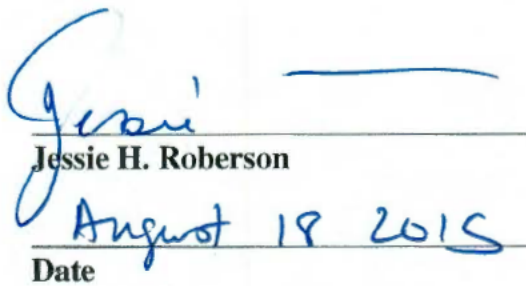 Jessie
Jessie H. Roberson
August 18 2015
Date